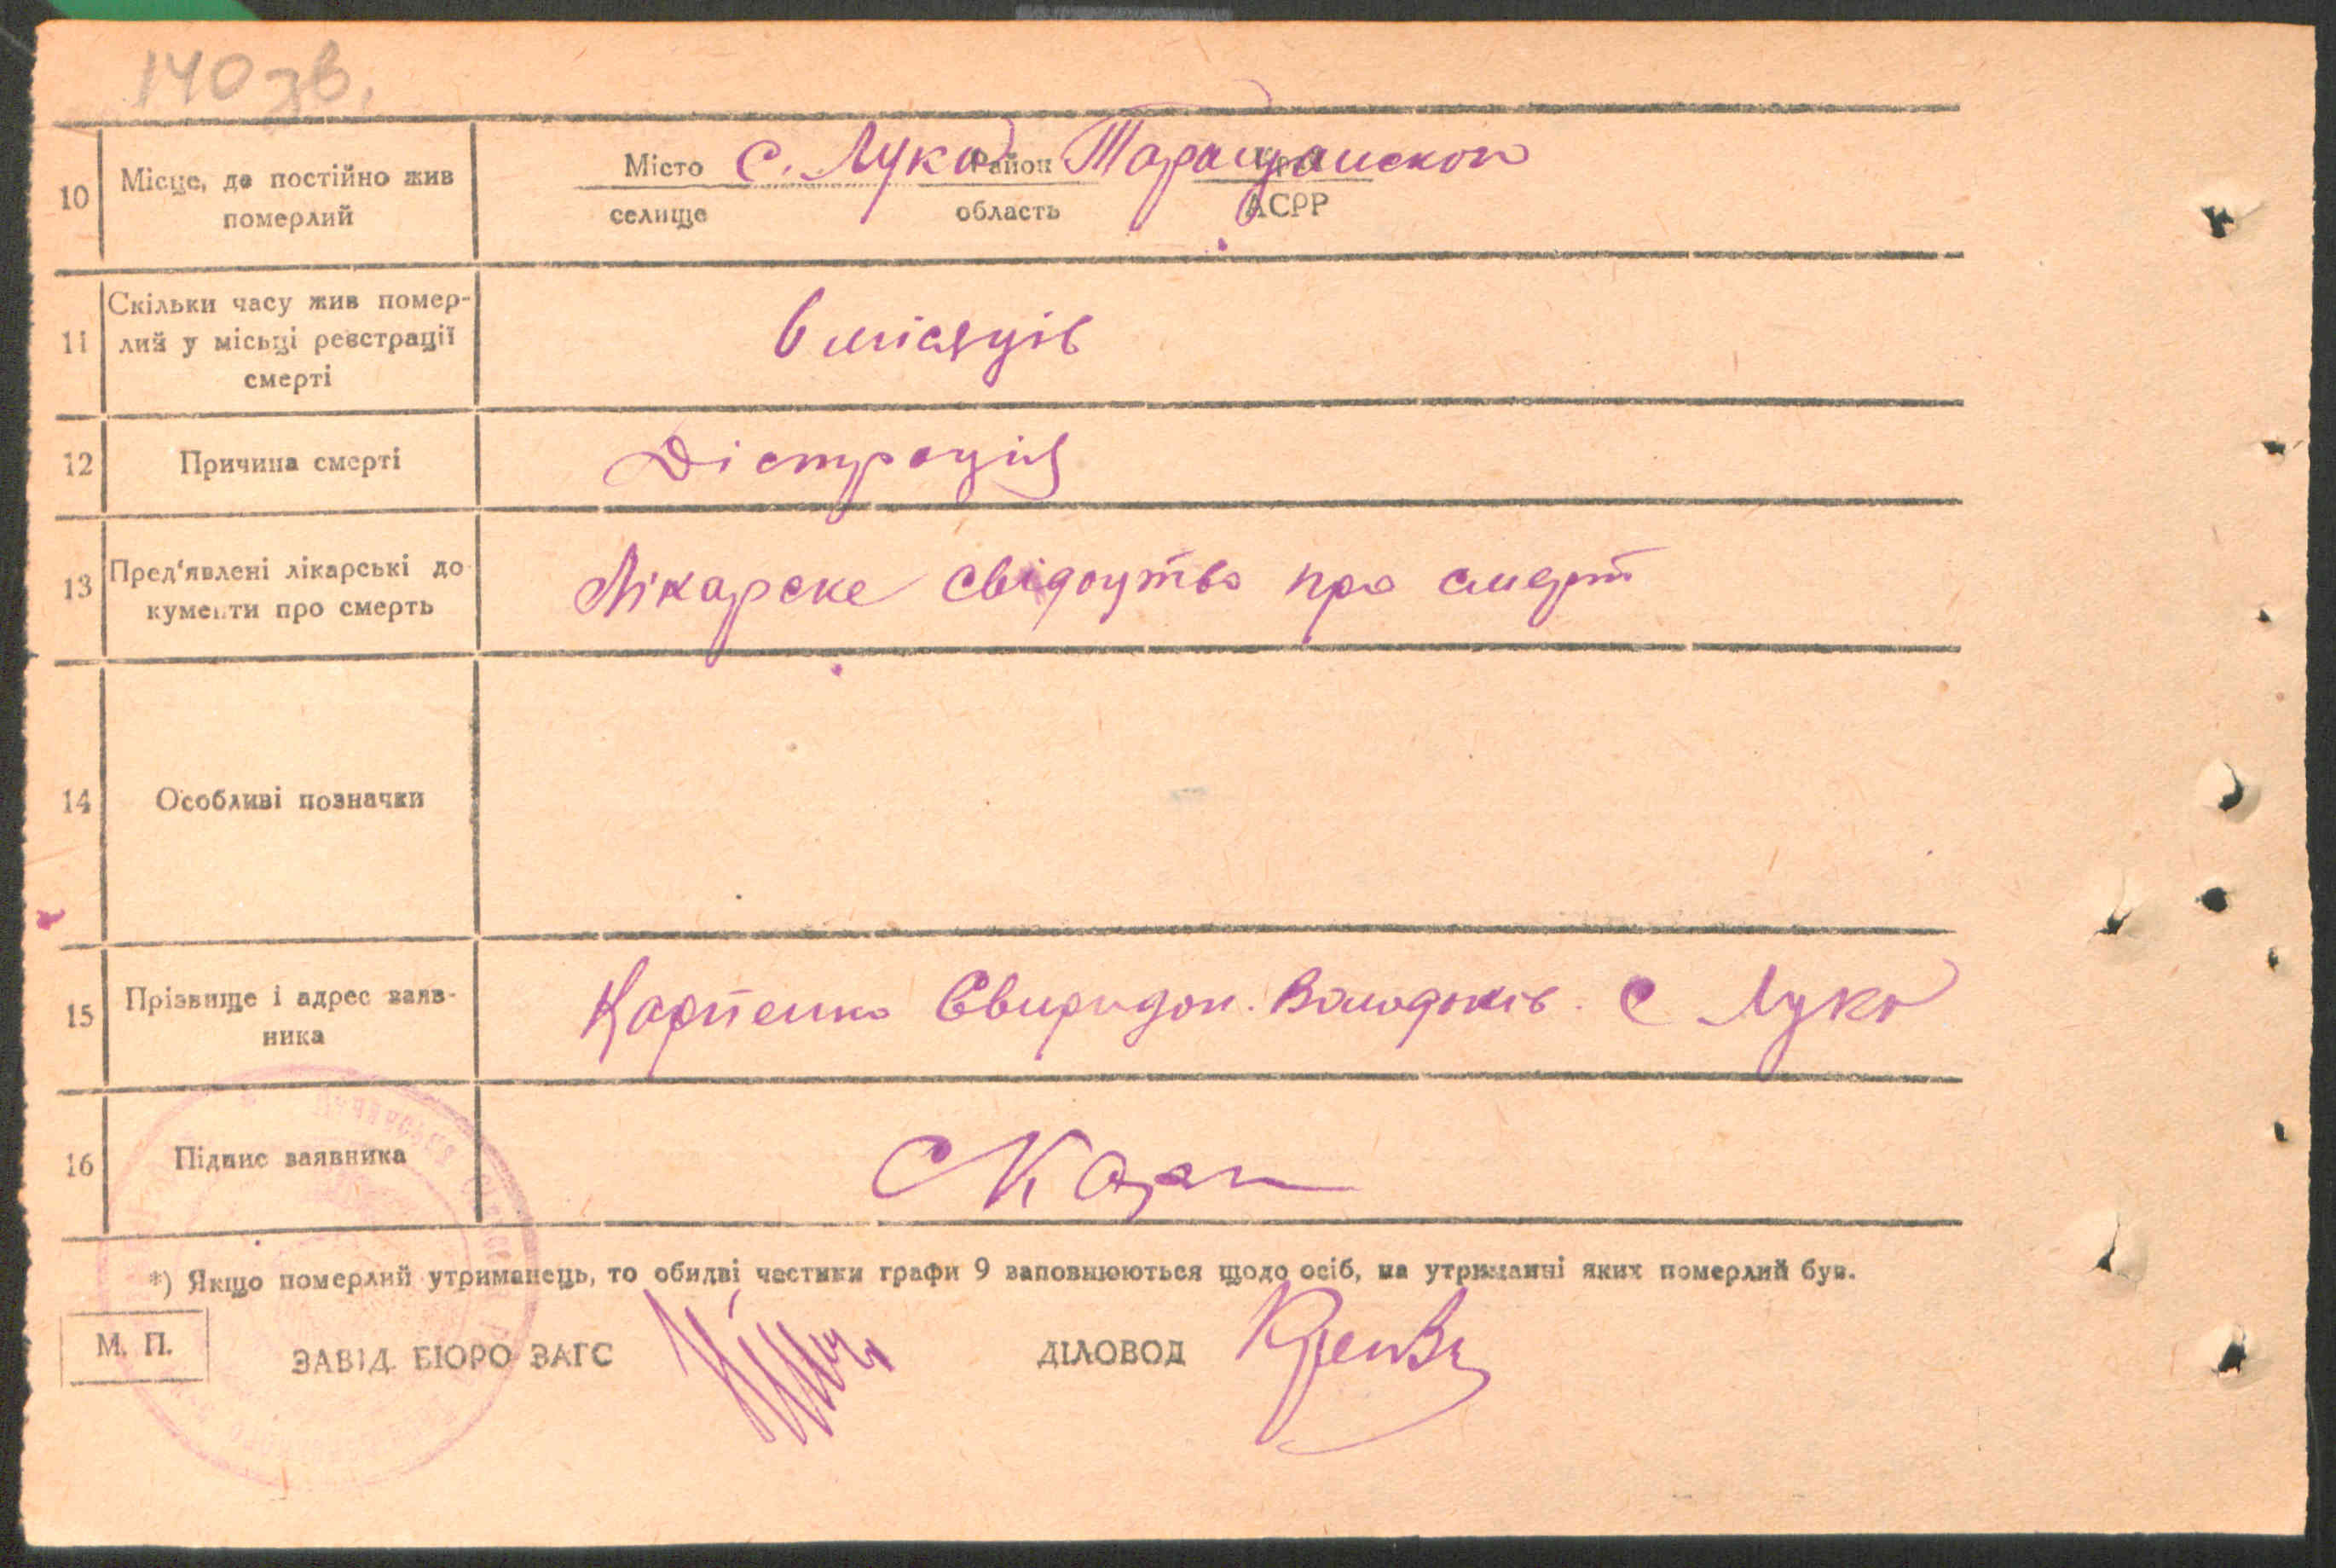 140 зв.
10 Місце, де постійно жив померлий
Місто с. Лука Район Таращанскои
селище область АСРР
11 Скільки часу жив помер-
лий у місьці реєстрації
смерті
6 місяців
12 Причина смерті
Дістроція
13 Пред'явлені лікарські до
кументи про смерть
Лікарске свідоцтво про смерт
14 Особливі позначки
15 Прізвище і адрес заяв-
ника
Карпенко Свиридон. с Лука
16 Підпис заявника
С Карп
*) Якщо померлий утриманець, то обидві частини графи 9 заповнюються щодо осіб, на утриманні яких померлий був.
М. П.
ЗАВІД. БЮРО ЗАГС ДІЛОВОД